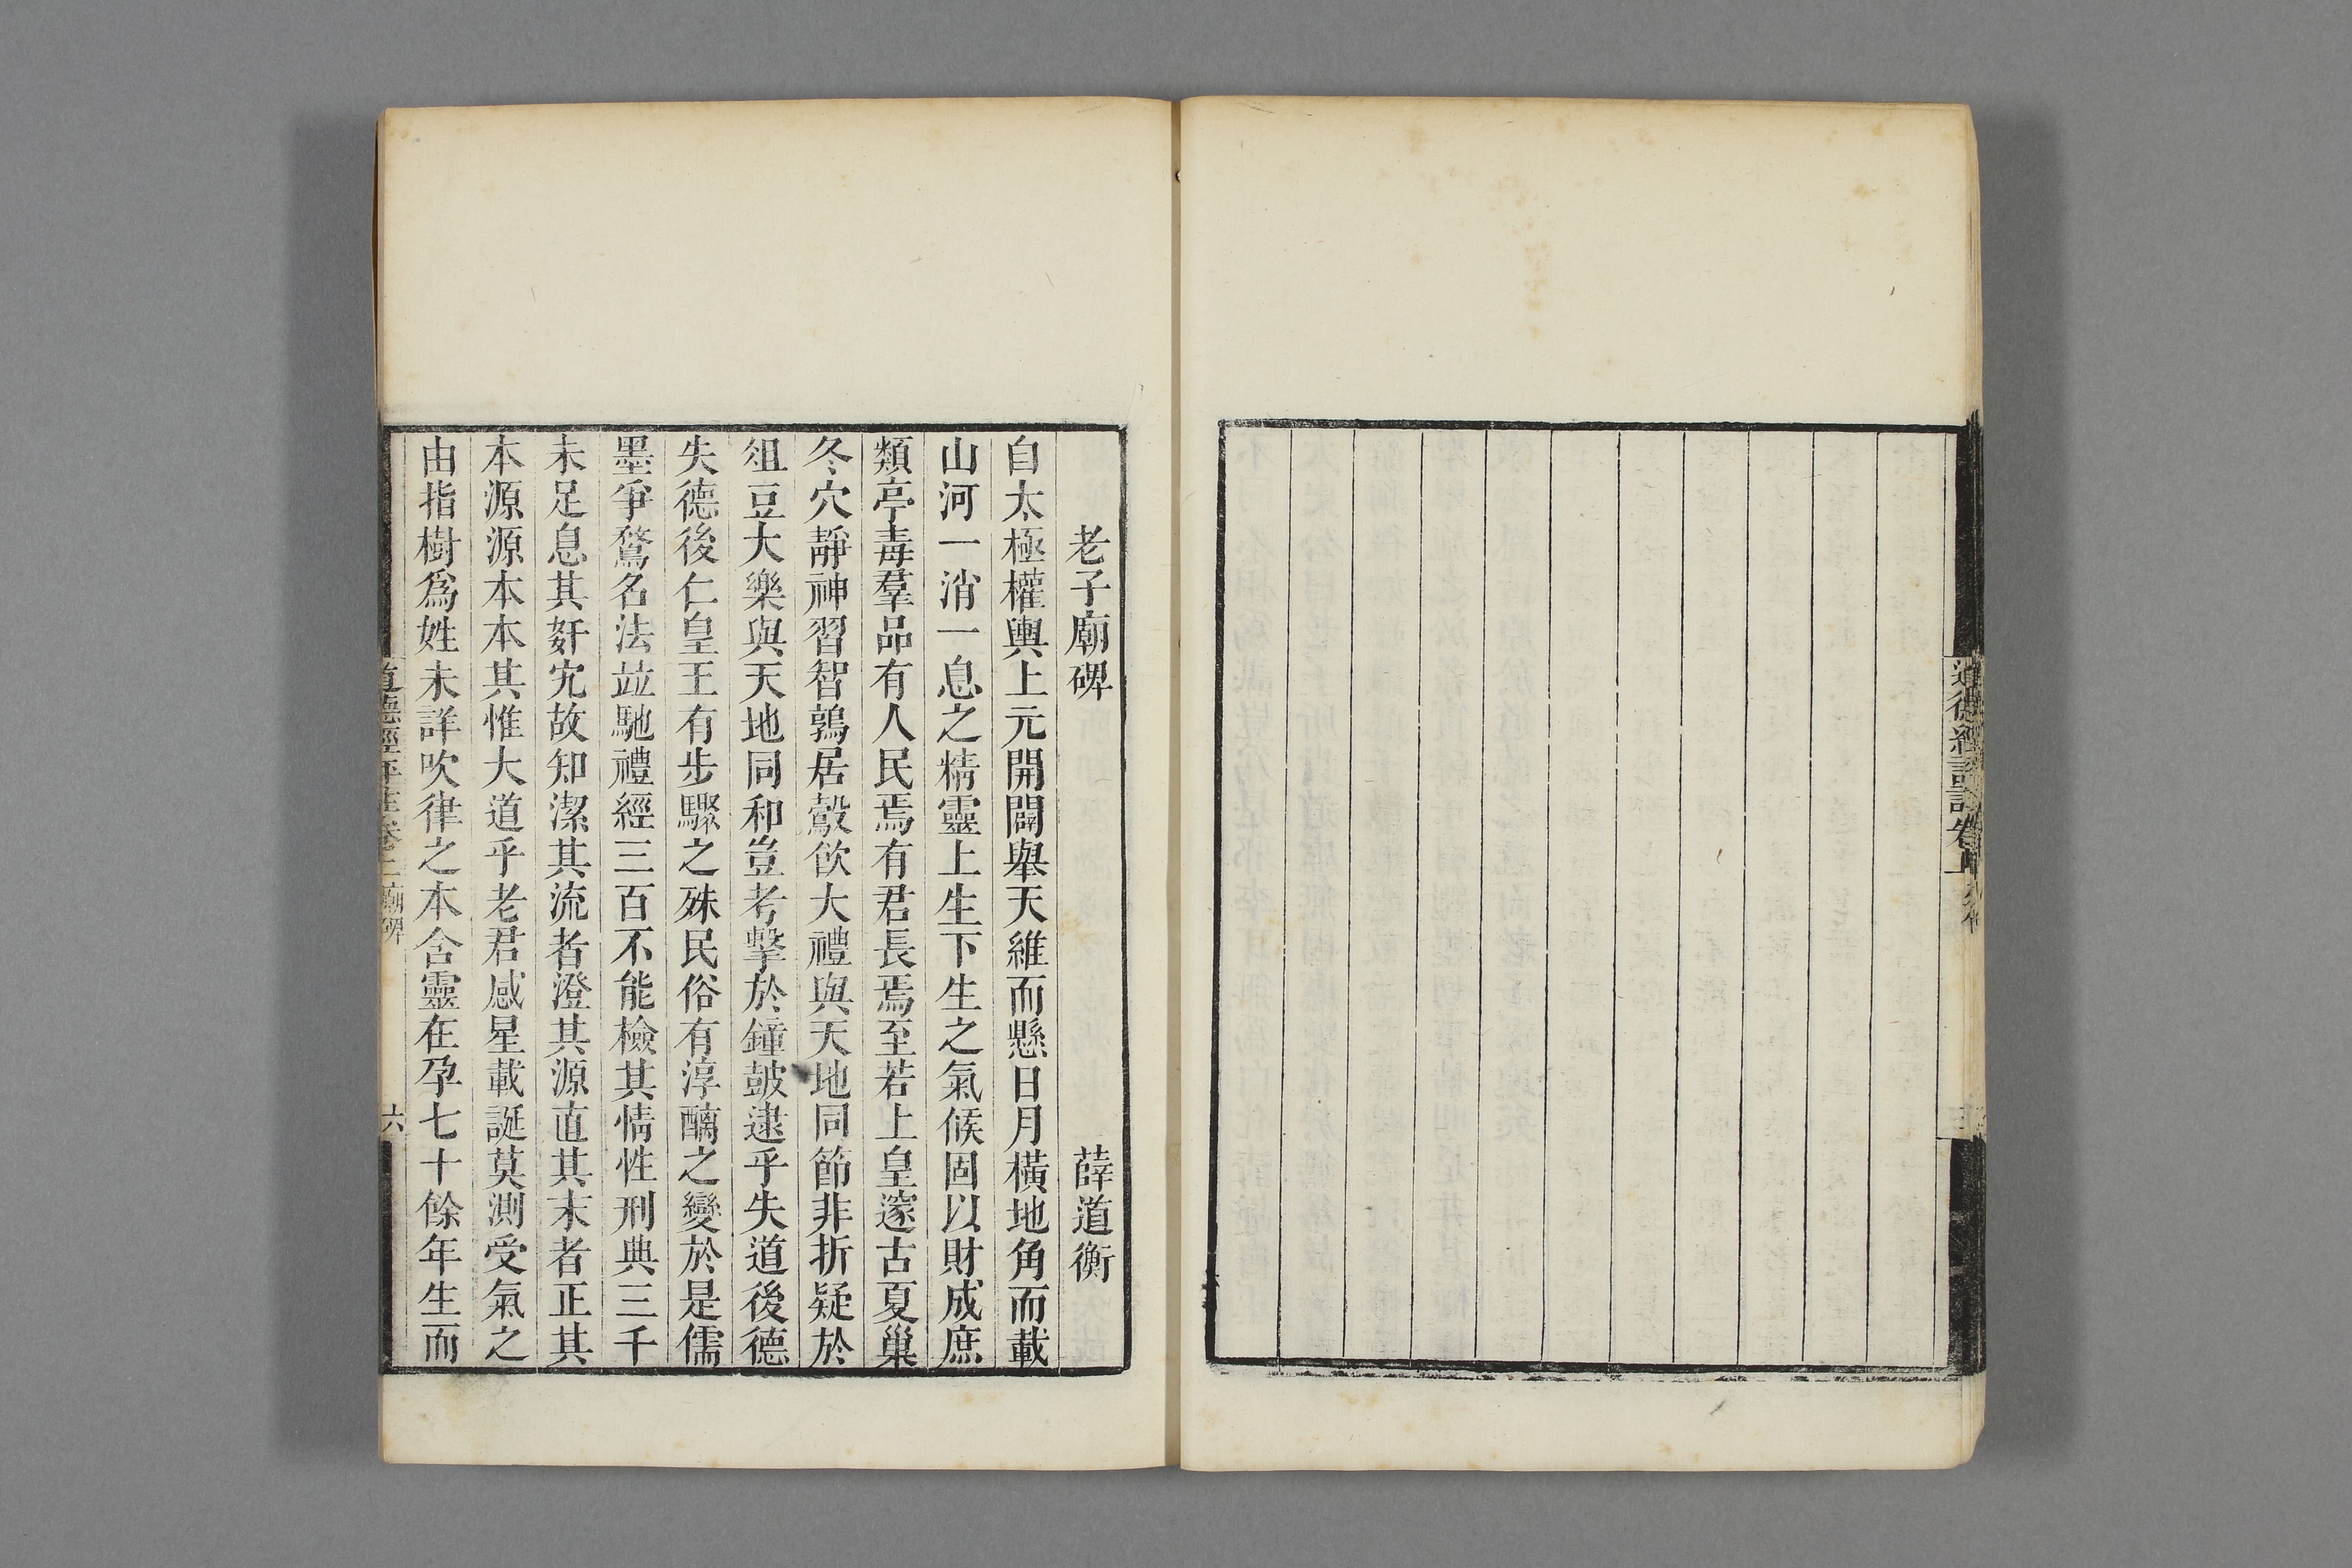 道德經評註卷上
老子廟碑 薛道衡
自太極權輿上元開闢舉天維而懸日月橫地角而載
山河一消一息之精靈上生下生之氣候固以財成庶
類亭毒羣品有人民焉有君長焉至若上皇邃古夏巢
冬穴靜神習智鶉居鷇飲大禮與天地同節非折疑於
俎豆大樂與天地同和豈考擊於鐘鼓逮乎失道後德
失德後仁皇王有步驟之殊民俗有淳醨之變於是儒
墨爭鶩名法竝馳禮經三百不能檢其情性刑典三千
未足息其姧宄故知潔其流者澄其源直其末者正其
本源源本本其惟大道乎老君感星載誕莫測受氣之
由指樹爲姓未詳吹律之本含靈在孕七十餘年生而
道德經評註卷上 廟碑 六